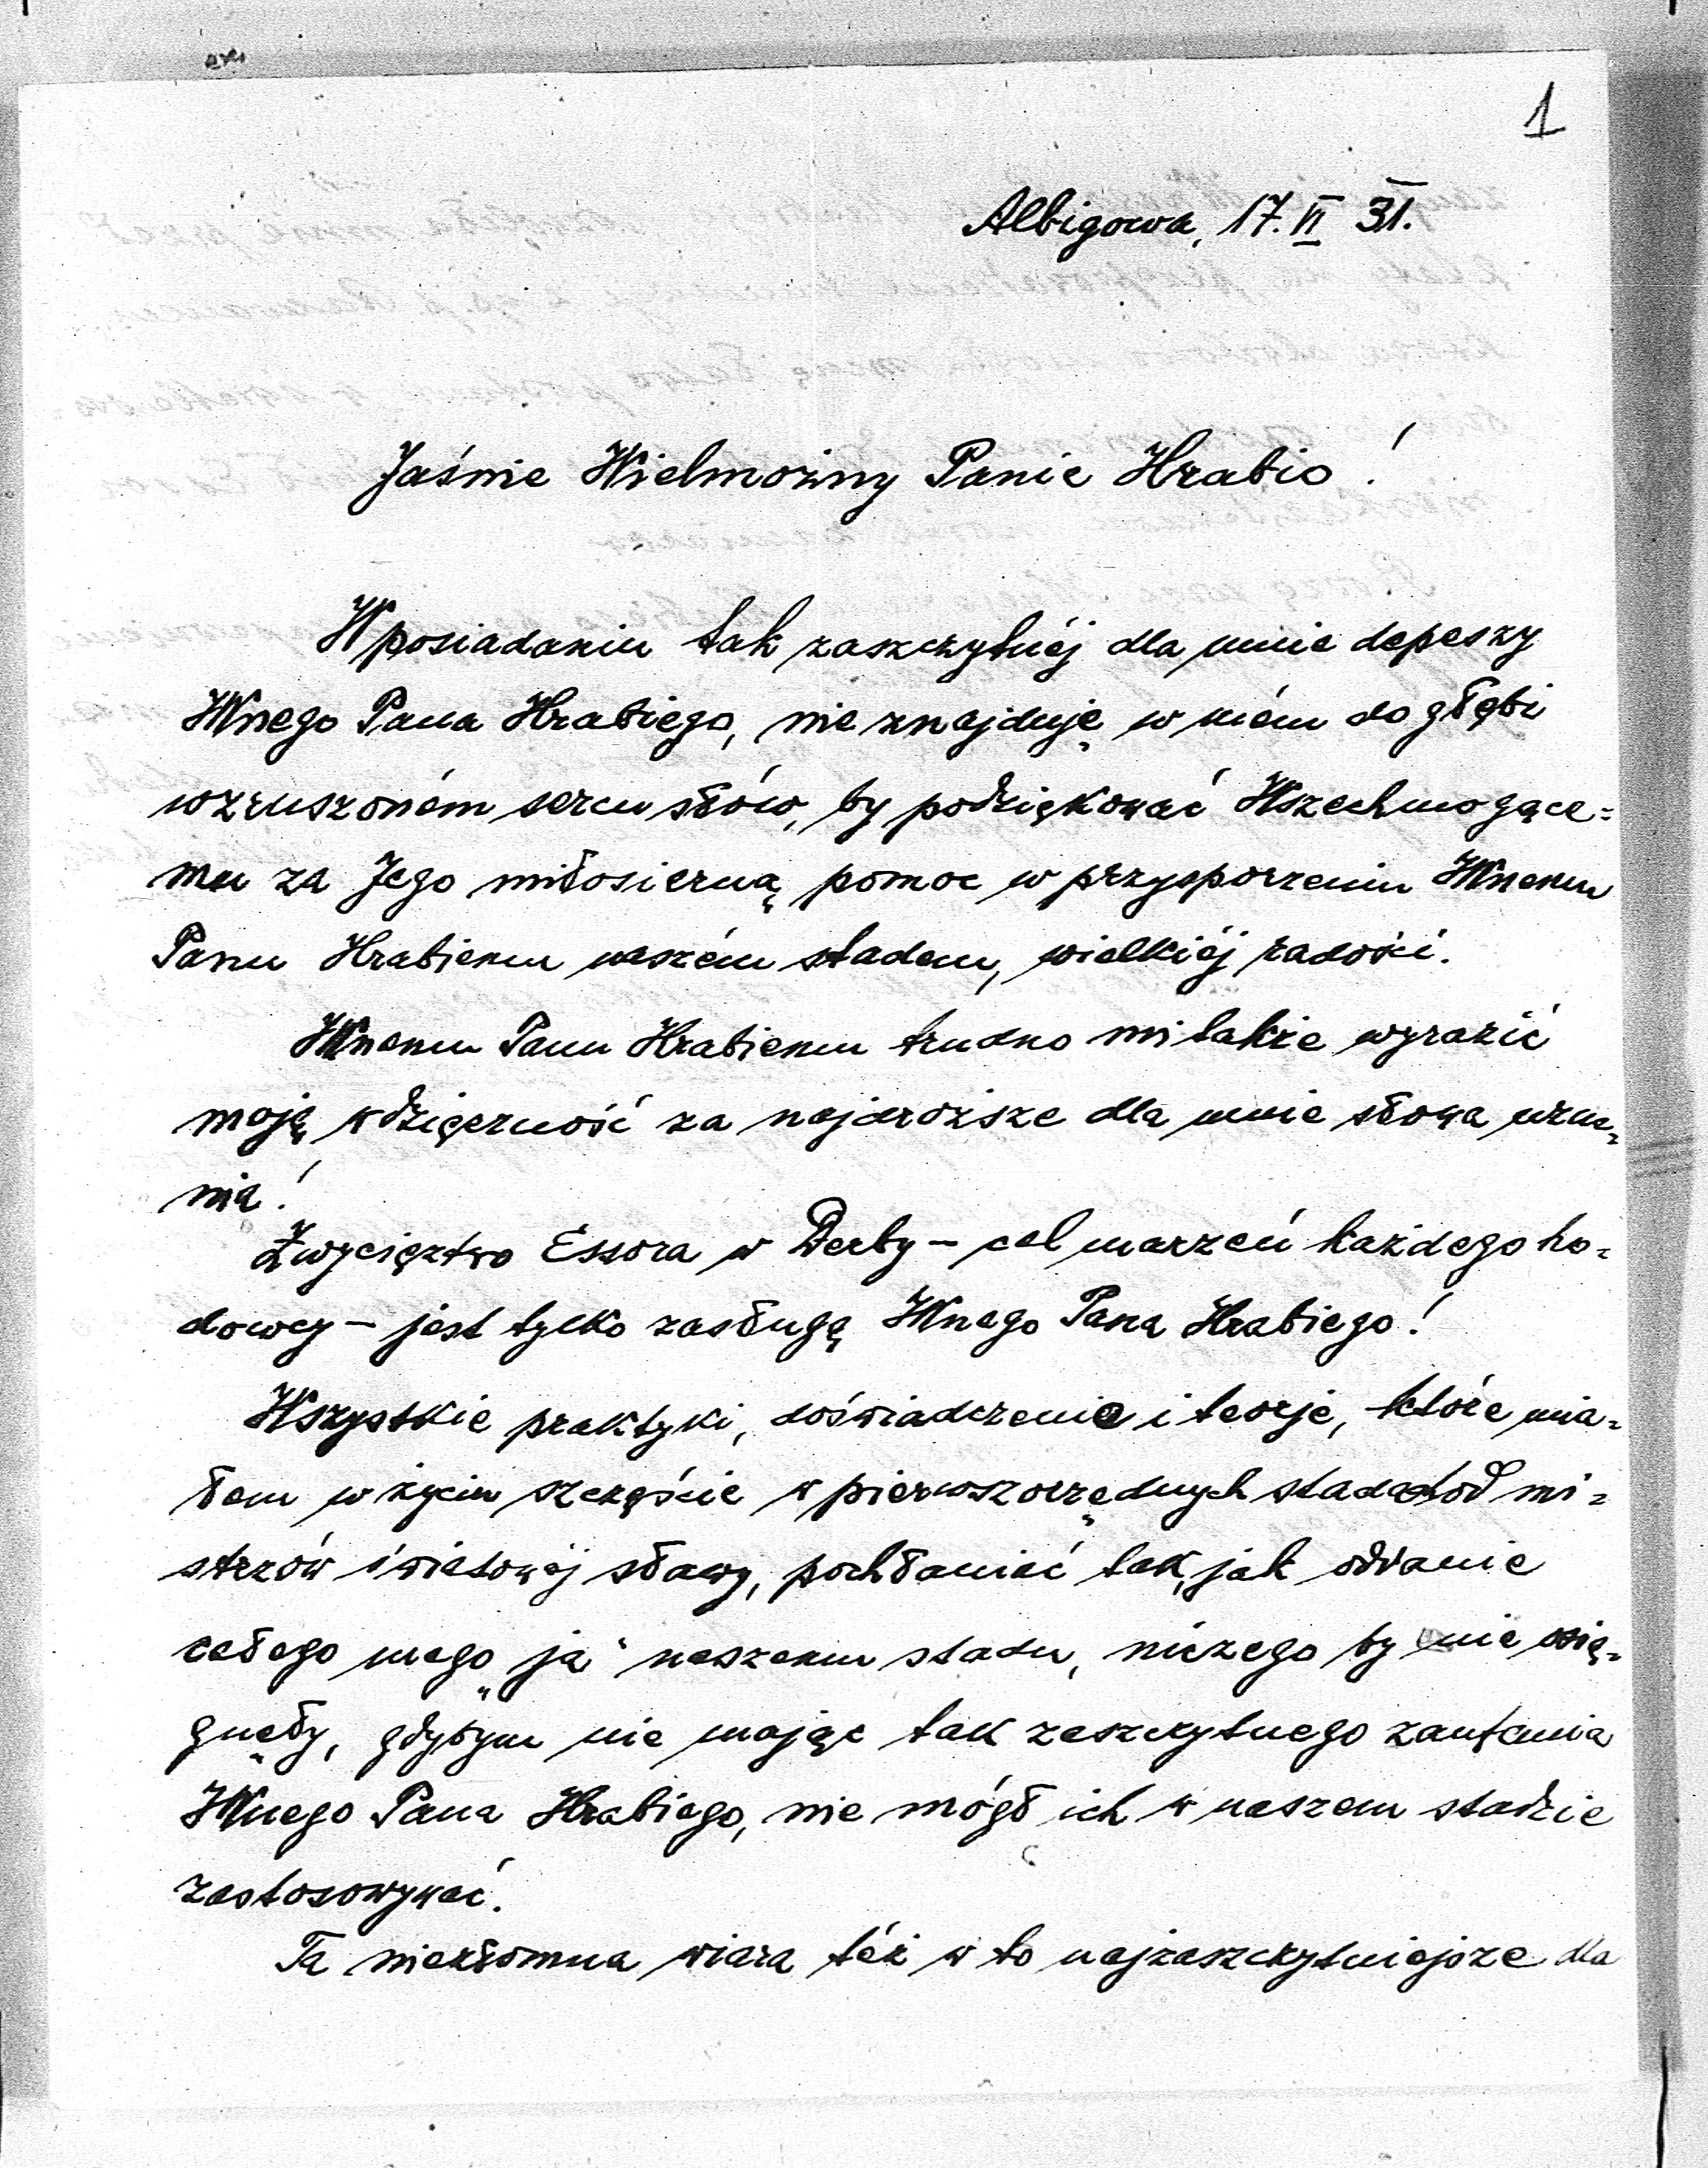 1
Albigowa, 17. VI 31.
Jaśnie Wielmożny Panie Hrabio!
W posiadaniu tak zaszczytnéj dla mnie depeszy
JWnego Pana Hrabiego, nie znajduję w mém do głębi
wzruszoném sercu słów, by podziękować Wszechmogące=
mu za Jego miłosierną pomoc w przysporzeniu JWnemu
Panu Hrabiemu naszém stadem, wielkiéj radości.
JWnemu Panu Hrabiemu trudno mi także wyrazić
moję wdzięczność za najdroższe dla mnie słowa uzna=
nia!
Zwycięztwo Essora w Derby – cel marzeń każdego ho=
dowcy – jest tylko zasługą JWnego Pana Hrabiego!
Wszystkie praktyki, doświadczenia i teorje, które mia=
łem w życiu szczęście w pierwszorzędnych stadach od mi=
strzów światowéj sławy, pochłaniać tak, jak oddanie
całego mego „ja“ naszemu stadu, niczego by nie osią=
gnęły, gdybym nie mając tak zaszczytnego zaufania
JWnego Pana Hrabiego, nie mógł ich w naszem stadzie
zastosowywać.
Ta niezłomna wiara téż w to najzaszczytniejsze dla